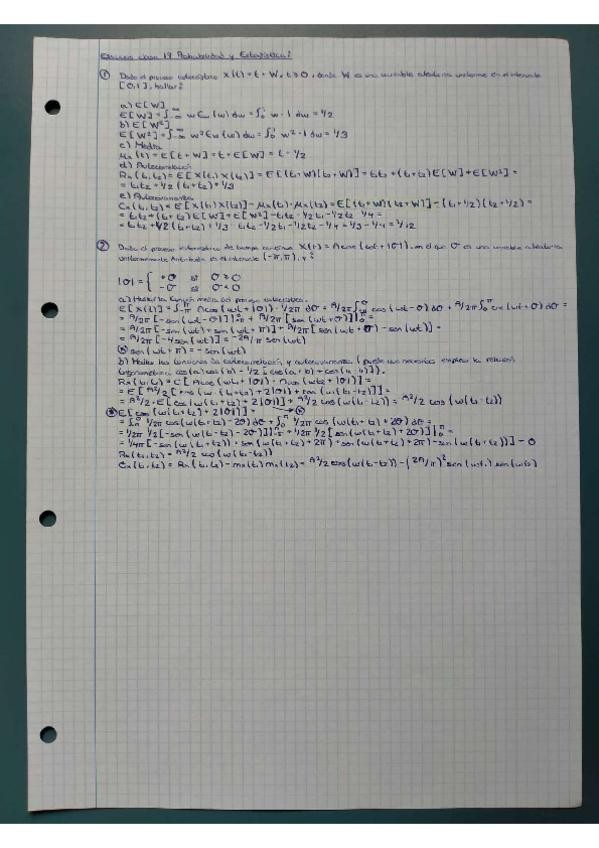 Examen clase 19 Probabilidad y Estadística:
① Dado el proceso estocástico X(t) = t + W, t ≥ 0, donde W es una variable aleatoria uniforme en el intervalo
[0,1], hallar:
a) E[W]
E[W] = ∫-∞^∞ w fw(w) dw = ∫0^1 w · 1 dw = 1/2
b) E[W²]
E[W²] = ∫-∞^∞ w² fw(w) dw = ∫0^1 w² · 1 dw = 1/3
c) Media
μx(t) = E[t+W] = t + E[W] = t - 1/2
d) Autocorrelación
Rx(t₁,t₂) = E[X(t₁)X(t₂)] = E[(t₁+W)(t₂+W)] = t₁t₂ + (t₁+t₂)E[W] + E[W²] =
= t₁t₂ + 1/2(t₁+t₂) + 1/3
e) Autocovarianza
Cx(t₁,t₂) = E[X(t₁)X(t₂)] - μx(t₁)·μx(t₂) = E[(t₁+W)(t₂+W)] - (t₁+1/2)(t₂+1/2) =
= t₁t₂ + (t₁+t₂)E[W] + E[W²] - t₁t₂ - 1/2t₁ - 1/2t₂ - 1/4 =
= t₁t₂ + 1/2(t₁+t₂) + 1/3 - t₁t₂ - 1/2t₁ - 1/2t₂ - 1/4 = 1/3 - 1/4 = 1/12
② Dado el proceso estocástico de tiempo continuo X(t) = A cos(ωt + |θ|), en el que θ es una variable aleatoria
uniformemente distribuida en el intervalo (-π,π), y:
|θ| = { +θ si θ ≥ 0
-θ si θ < 0
a) Hallar la función media del proceso estocástico.
E[X(t)] = ∫-π^π A cos(ωt + |θ|) · 1/2π dθ = A/2π ∫-π^0 cos(ωt - θ) dθ + A/2π ∫0^π cos(ωt + θ) dθ =
= A/2π [-sen(ωt - θ)]|-π^0 + A/2π [sen(ωt + θ)]|0^π =
= A/2π [-sen(ωt) + sen(ωt + π)] + A/2π [sen(ωt + θ) - sen(ωt)] =
= A/2π [-4sen(ωt)] = -2A/π sen(ωt)
sen(ωt + π) = -sen(ωt)
b) Hallar las funciones de autocorrelación y autocovarianza. (puede ser necesario emplear la relación
trigonométrica cos(a)cos(b) = 1/2 [cos(a+b) + cos(a-b)]).
Rx(t₁,t₂) = E[A cos(ωt₁ + |θ|) · A cos(ωt₂ + |θ|)] =
= E[A²/2 [cos(ω(t₁+t₂) + 2|θ|) + cos(ω(t₁-t₂))]] =
= A²/2 · E[cos(ω(t₁+t₂) + 2|θ|)] + A²/2 cos(ω(t₁-t₂)) = A²/2 cos(ω(t₁-t₂))
E[cos(ω(t₁+t₂) + 2|θ|)] =
= ∫-π^0 1/2π cos(ω(t₁+t₂) - 2θ) dθ + ∫0^π 1/2π cos(ω(t₁+t₂) + 2θ) dθ =
= 1/2π 1/2 [-sen(ω(t₁+t₂) - 2θ)]|-π^0 + 1/2π 1/2 [sen(ω(t₁+t₂) + 2θ)]|0^π =
= 1/4π [-sen(ω(t₁+t₂)) + sen(ω(t₁+t₂) + 2π) + sen(ω(t₁+t₂) + 2π) - sen(ω(t₁+t₂))] = 0
Rx(t₁,t₂) = A²/2 cos(ω(t₁-t₂))
Cx(t₁,t₂) = Rx(t₁,t₂) - mx(t₁)mx(t₂) = A²/2 cos(ω(t₁-t₂)) - (2A/π)² sen(ωt₁) sen(ωt₂)